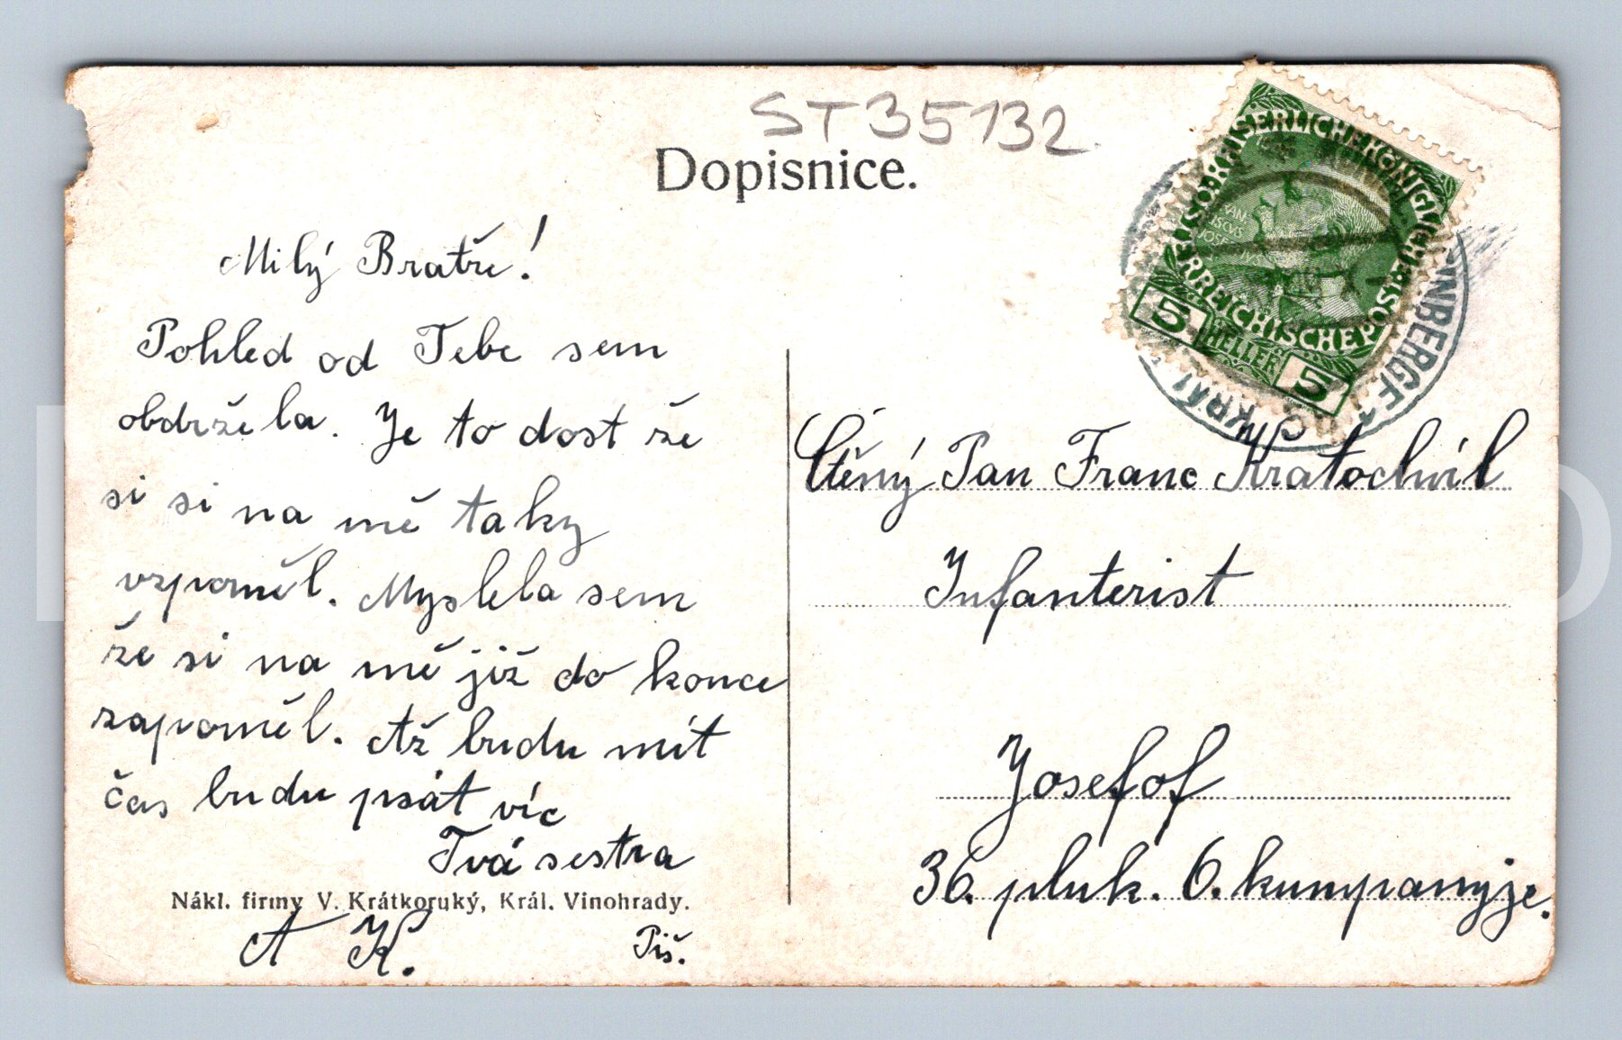 ST35132
Dopisnice.
Milý Bratře!
Pohled od Tebe sem
obdržela. Je to dost že
si si na mě taky
vzpoměl. Myslela sem
že si na mě již do konce
zapoměl. Až budu mít
čas budu psát víc
Tvá sestra
Nákl. firmy V. Krátkoruký, Král. Vinohrady.
A K.
Piš.
KAISERLICHE KÖNIGLICHE
ÖSTERREICHISCHE POST
5 HELLER 5
Ctěný Pan Franc Kratochvíl
Infanterist
Josefof
36. pluk. 6. kumpanyje.